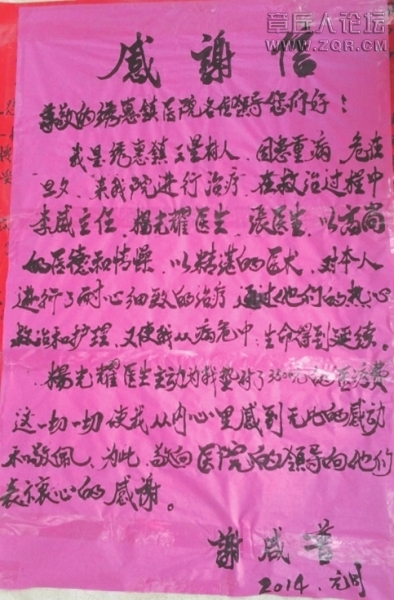 章丘人论坛
WWW.ZQR.CM
感謝信
尊敬的绣惠镇医院各位领导您们好!
我是绣惠镇三星村人,因患重病,危在
旦夕,来我院进行治疗,在救治过程中
李威主任,楊光耀医生,張医生,以高尚
的医德和情操,以精湛的医术,对本人
进行了耐心细致的治疗,通过他们的热心
救治和护理,又使我从病危中,生命得到延续。
楊光耀医生主动为我垫付了3200元的医药费
这一切一切使我从内心里感到无比的感动
和敬佩,为此,敬向医院的领导向他们
表示衷心的感谢。
謝成
2014.元月